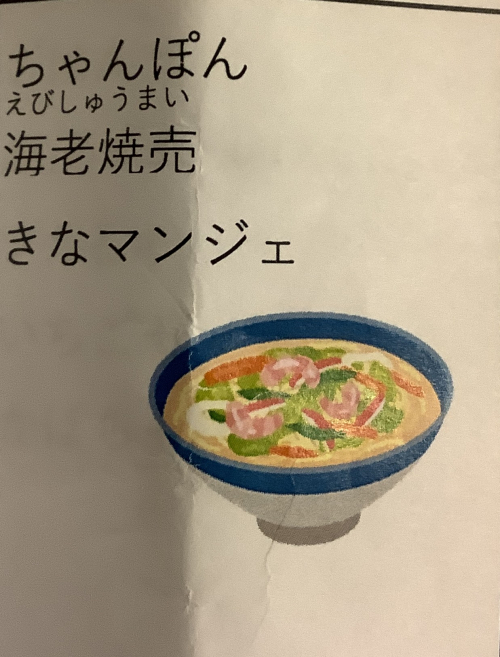 ちゃんぽん
えびしゅうまい
海老焼売
きなマンジェ